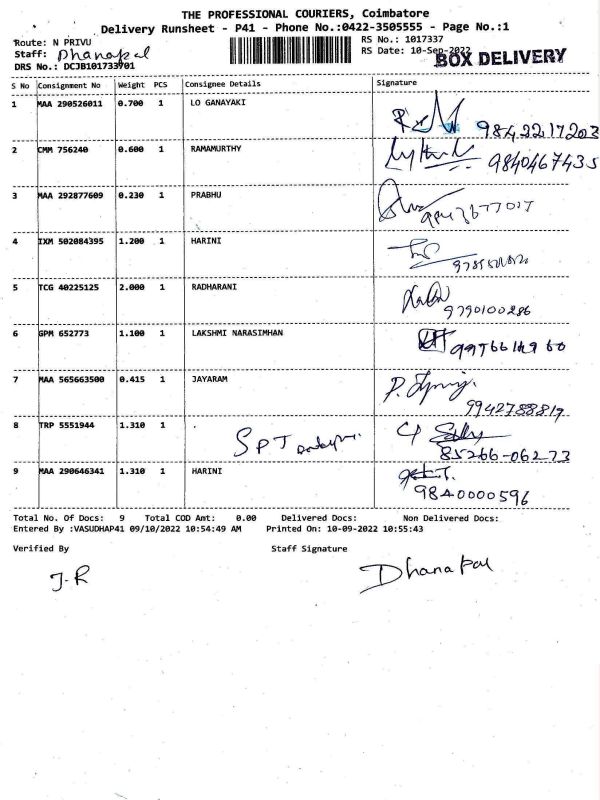 THE PROFESSIONAL COURIERS, Coimbatore
Delivery Runsheet - P41 - Phone No.:0422-3505555 - Page No.:1
Route: N PRIVU
RS No.: 1017337
Staff: Dhanapal
RS Date: 10-Sep-2022
BOX DELIVERY
DRS No.: DCJB101733701
S No Consignment No Weight PCS Consignee Details Signature
1 MAA 290526011 0.700 1 LO GANAYAKI
9842217203
2 CMM 756240 0.600 1 RAMAMURTHY
9840467435
3 MAA 292877609 0.230 1 PRABHU
4 IXM 502084395 1.200 1 HARINI
5 TCG 40225125 2.000 1 RADHARANI
9790100286
6 GPM 652773 1.100 1 LAKSHMI NARASIMHAN
7 MAA 565663500 0.415 1 JAYARAM
9942788819
8 TRP 5551944 1.310 1 SPT
85266-06273
9 MAA 290646341 1.310 1 HARINI
9840000596
Total No. Of Docs: 9 Total COD Amt: 0.00 Delivered Docs: Non Delivered Docs:
Entered By :VASUDHAP41 09/10/2022 10:54:49 AM Printed On: 10-09-2022 10:55:43
Verified By Staff Signature
J.R Dhanapal